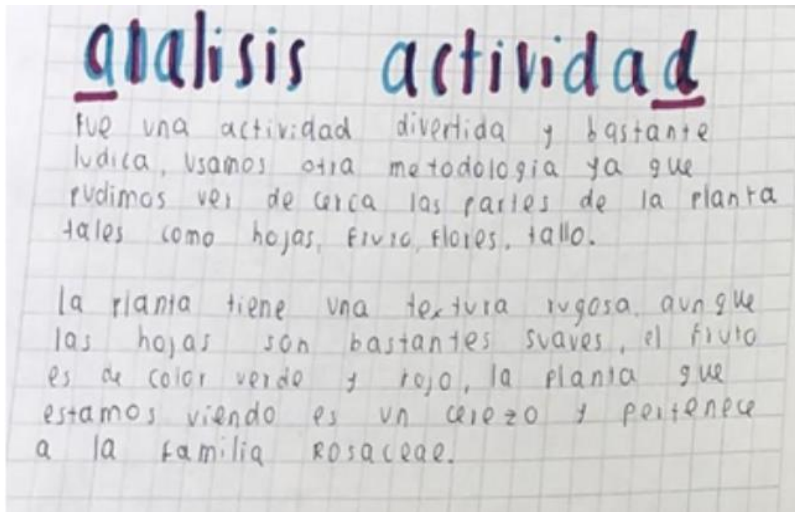 analisis actividad
Fue una actividad divertida y bastante
ludica, usamos otra metodologia ya que
pudimos ver de cerca las partes de la planta
tales como hojas, fruto, flores, tallo.
la planta tiene una textura rugosa, aunque
las hojas son bastantes suaves, el fruto
es de color verde y rojo, la planta que
estamos viendo es un cerezo y pertenece
a la familia Rosaceae.